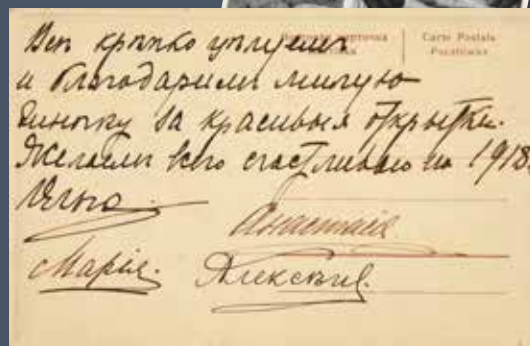 Carte Postale
Pocztówka
Всѣ крѣпко цѣлуемъ
и благодаримъ милую
Зиночку за красивыя открытки.
Желаемъ всего счастливаго на 1918.
Ольга.
Анастасія
Марія. Алексѣй.